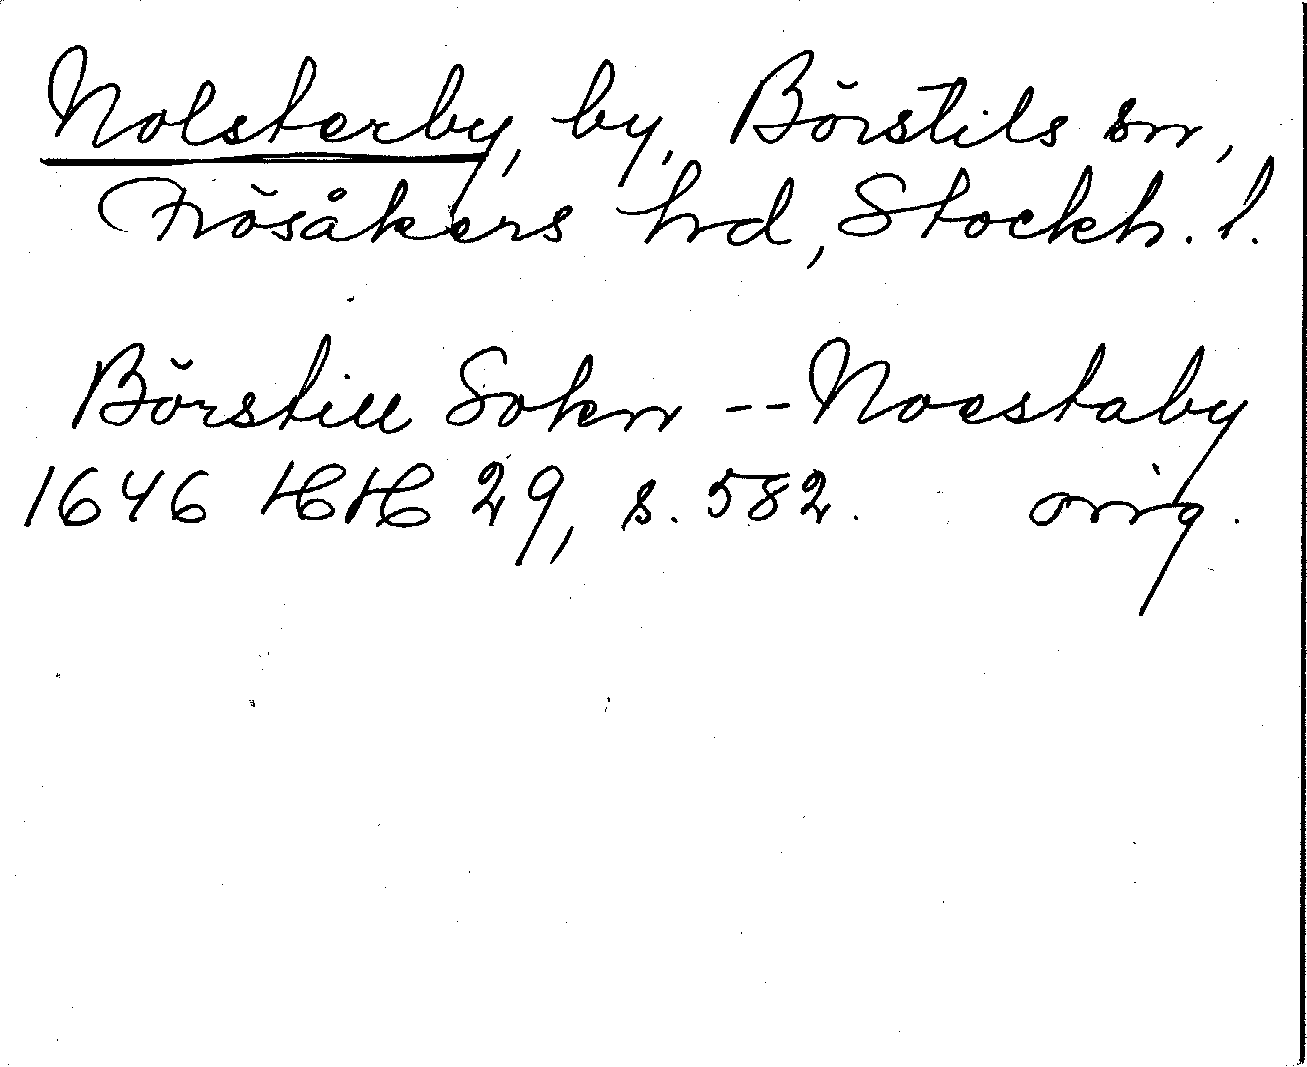 Nolsterby, by, Börstils sn,
Frösåkers hd, Stockh. l.
Börstill Sokn -- Noestaby
1646 HH 29, s. 582. orig.